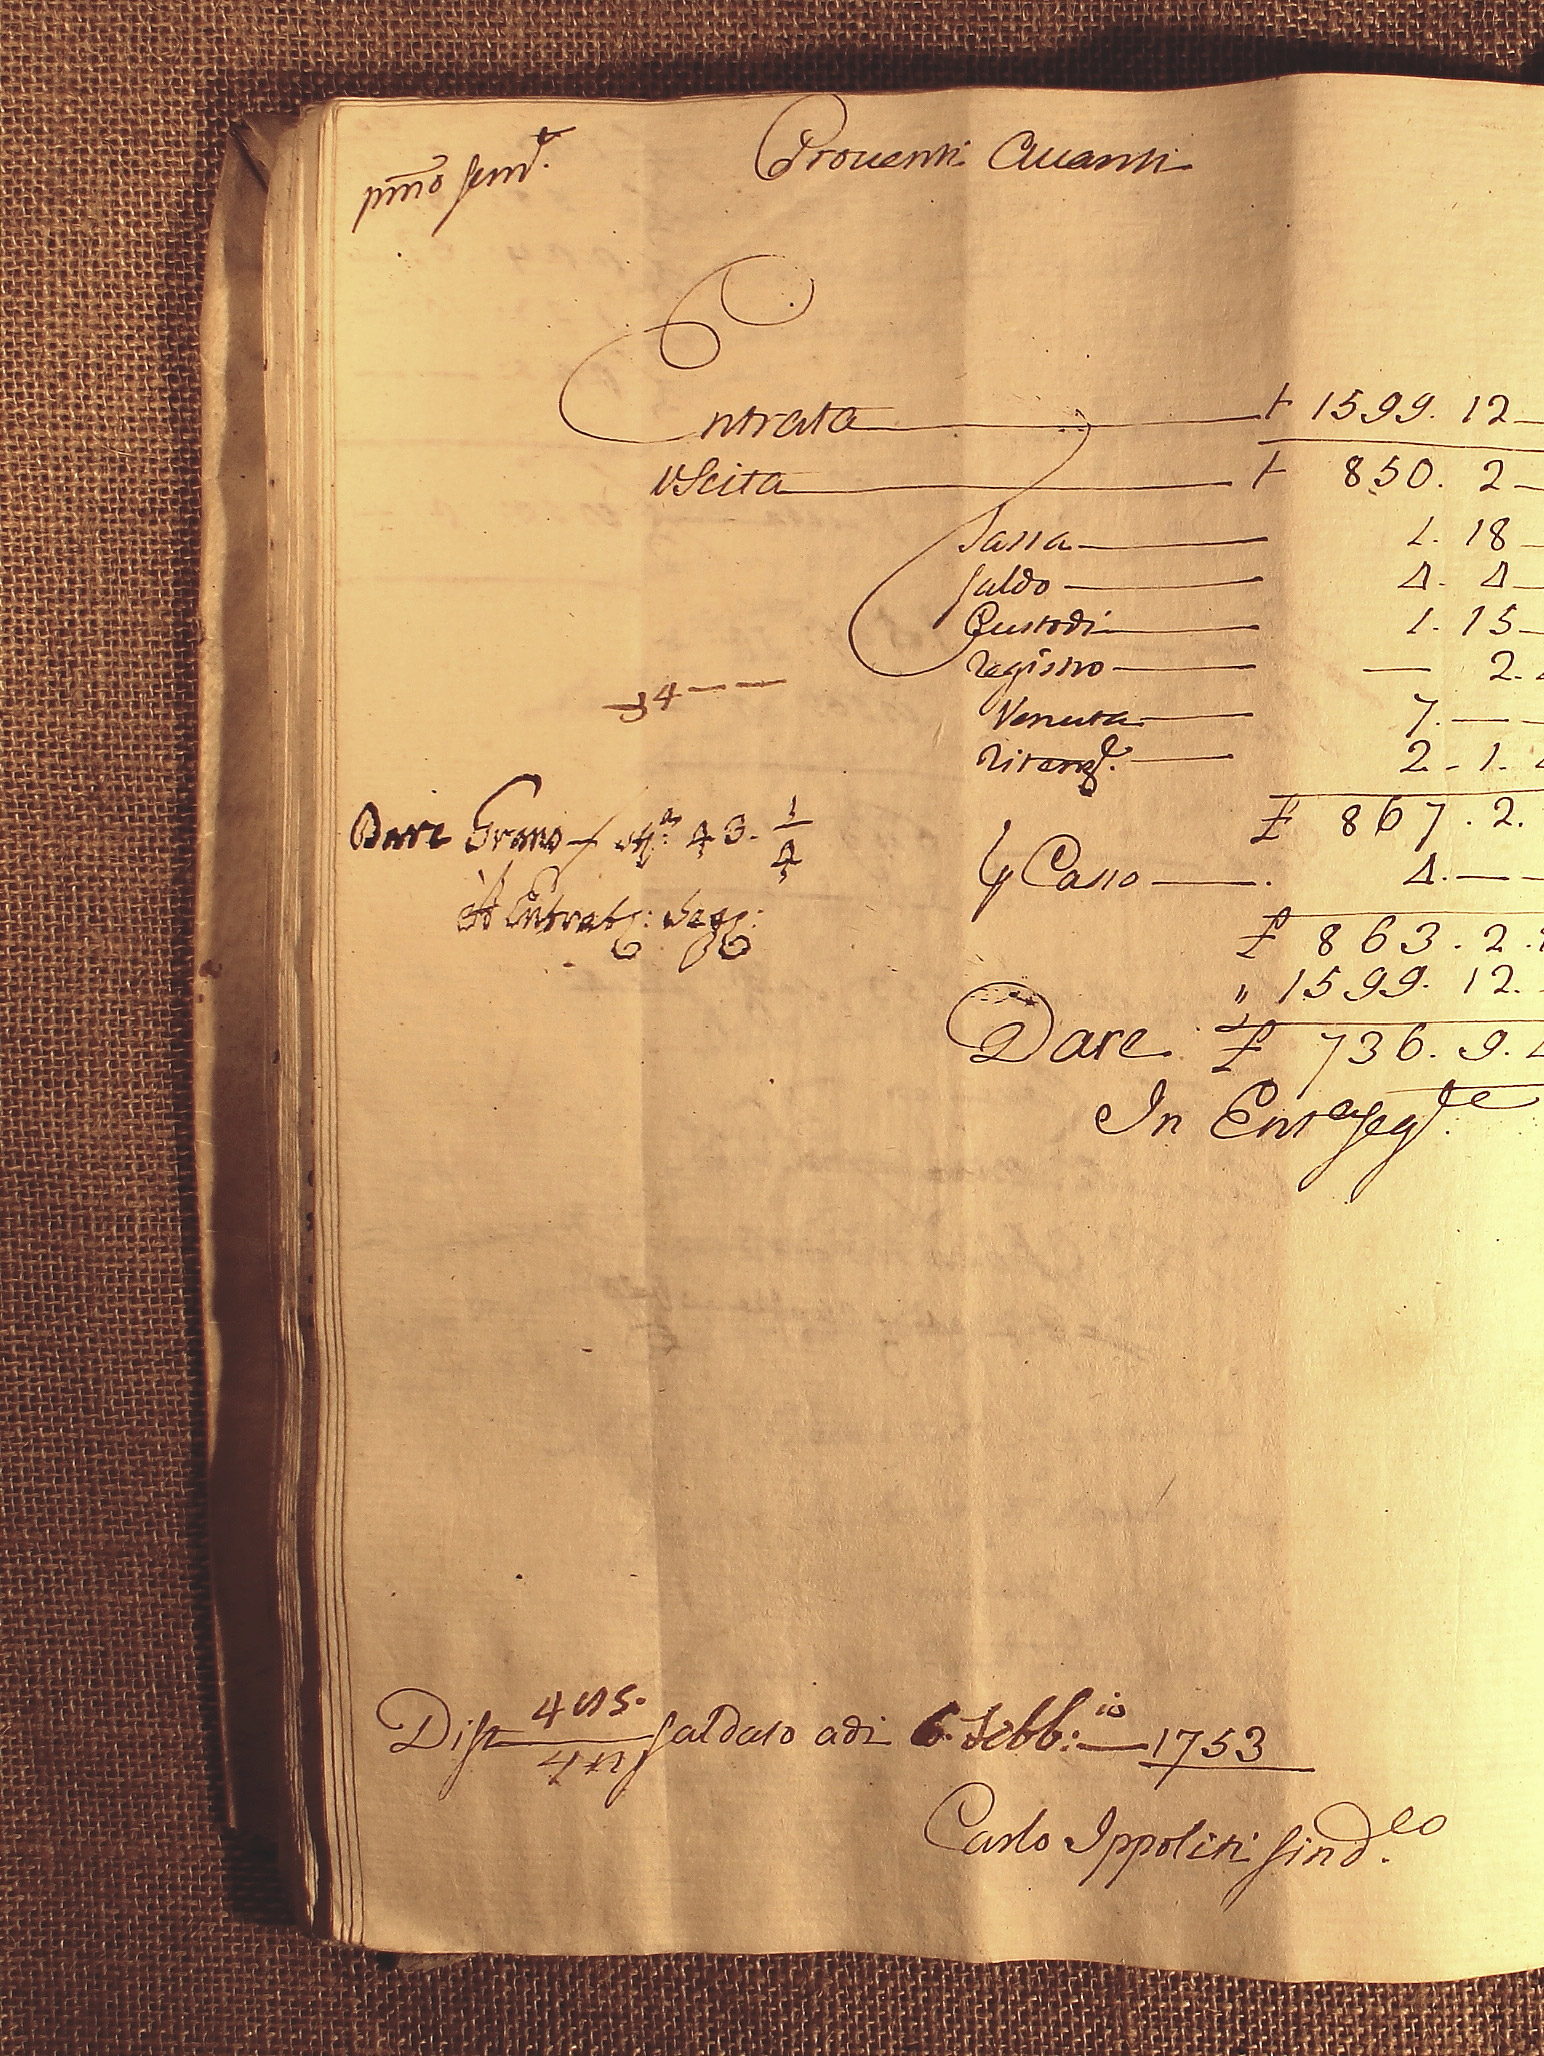 pmo sem.e
Proventi Avanti
Entrata 1599. 12
Uscita 850. 2
Tassa 1. 18
Saldo 4. 4
Custodi 1. 15
Registro — 2.
Venuta 7. —
34 — —
£ 867. 2.
Dare Grano 43. 1/4
Casso 4. —
Entrat: segg:
£ 863. 2.
" 1599. 12.
Dare £ 736. 9.
In Ent.a seg.te
Dist saldato adi 6. Febb:io 1753
Carlo Ippoliti Sind.co